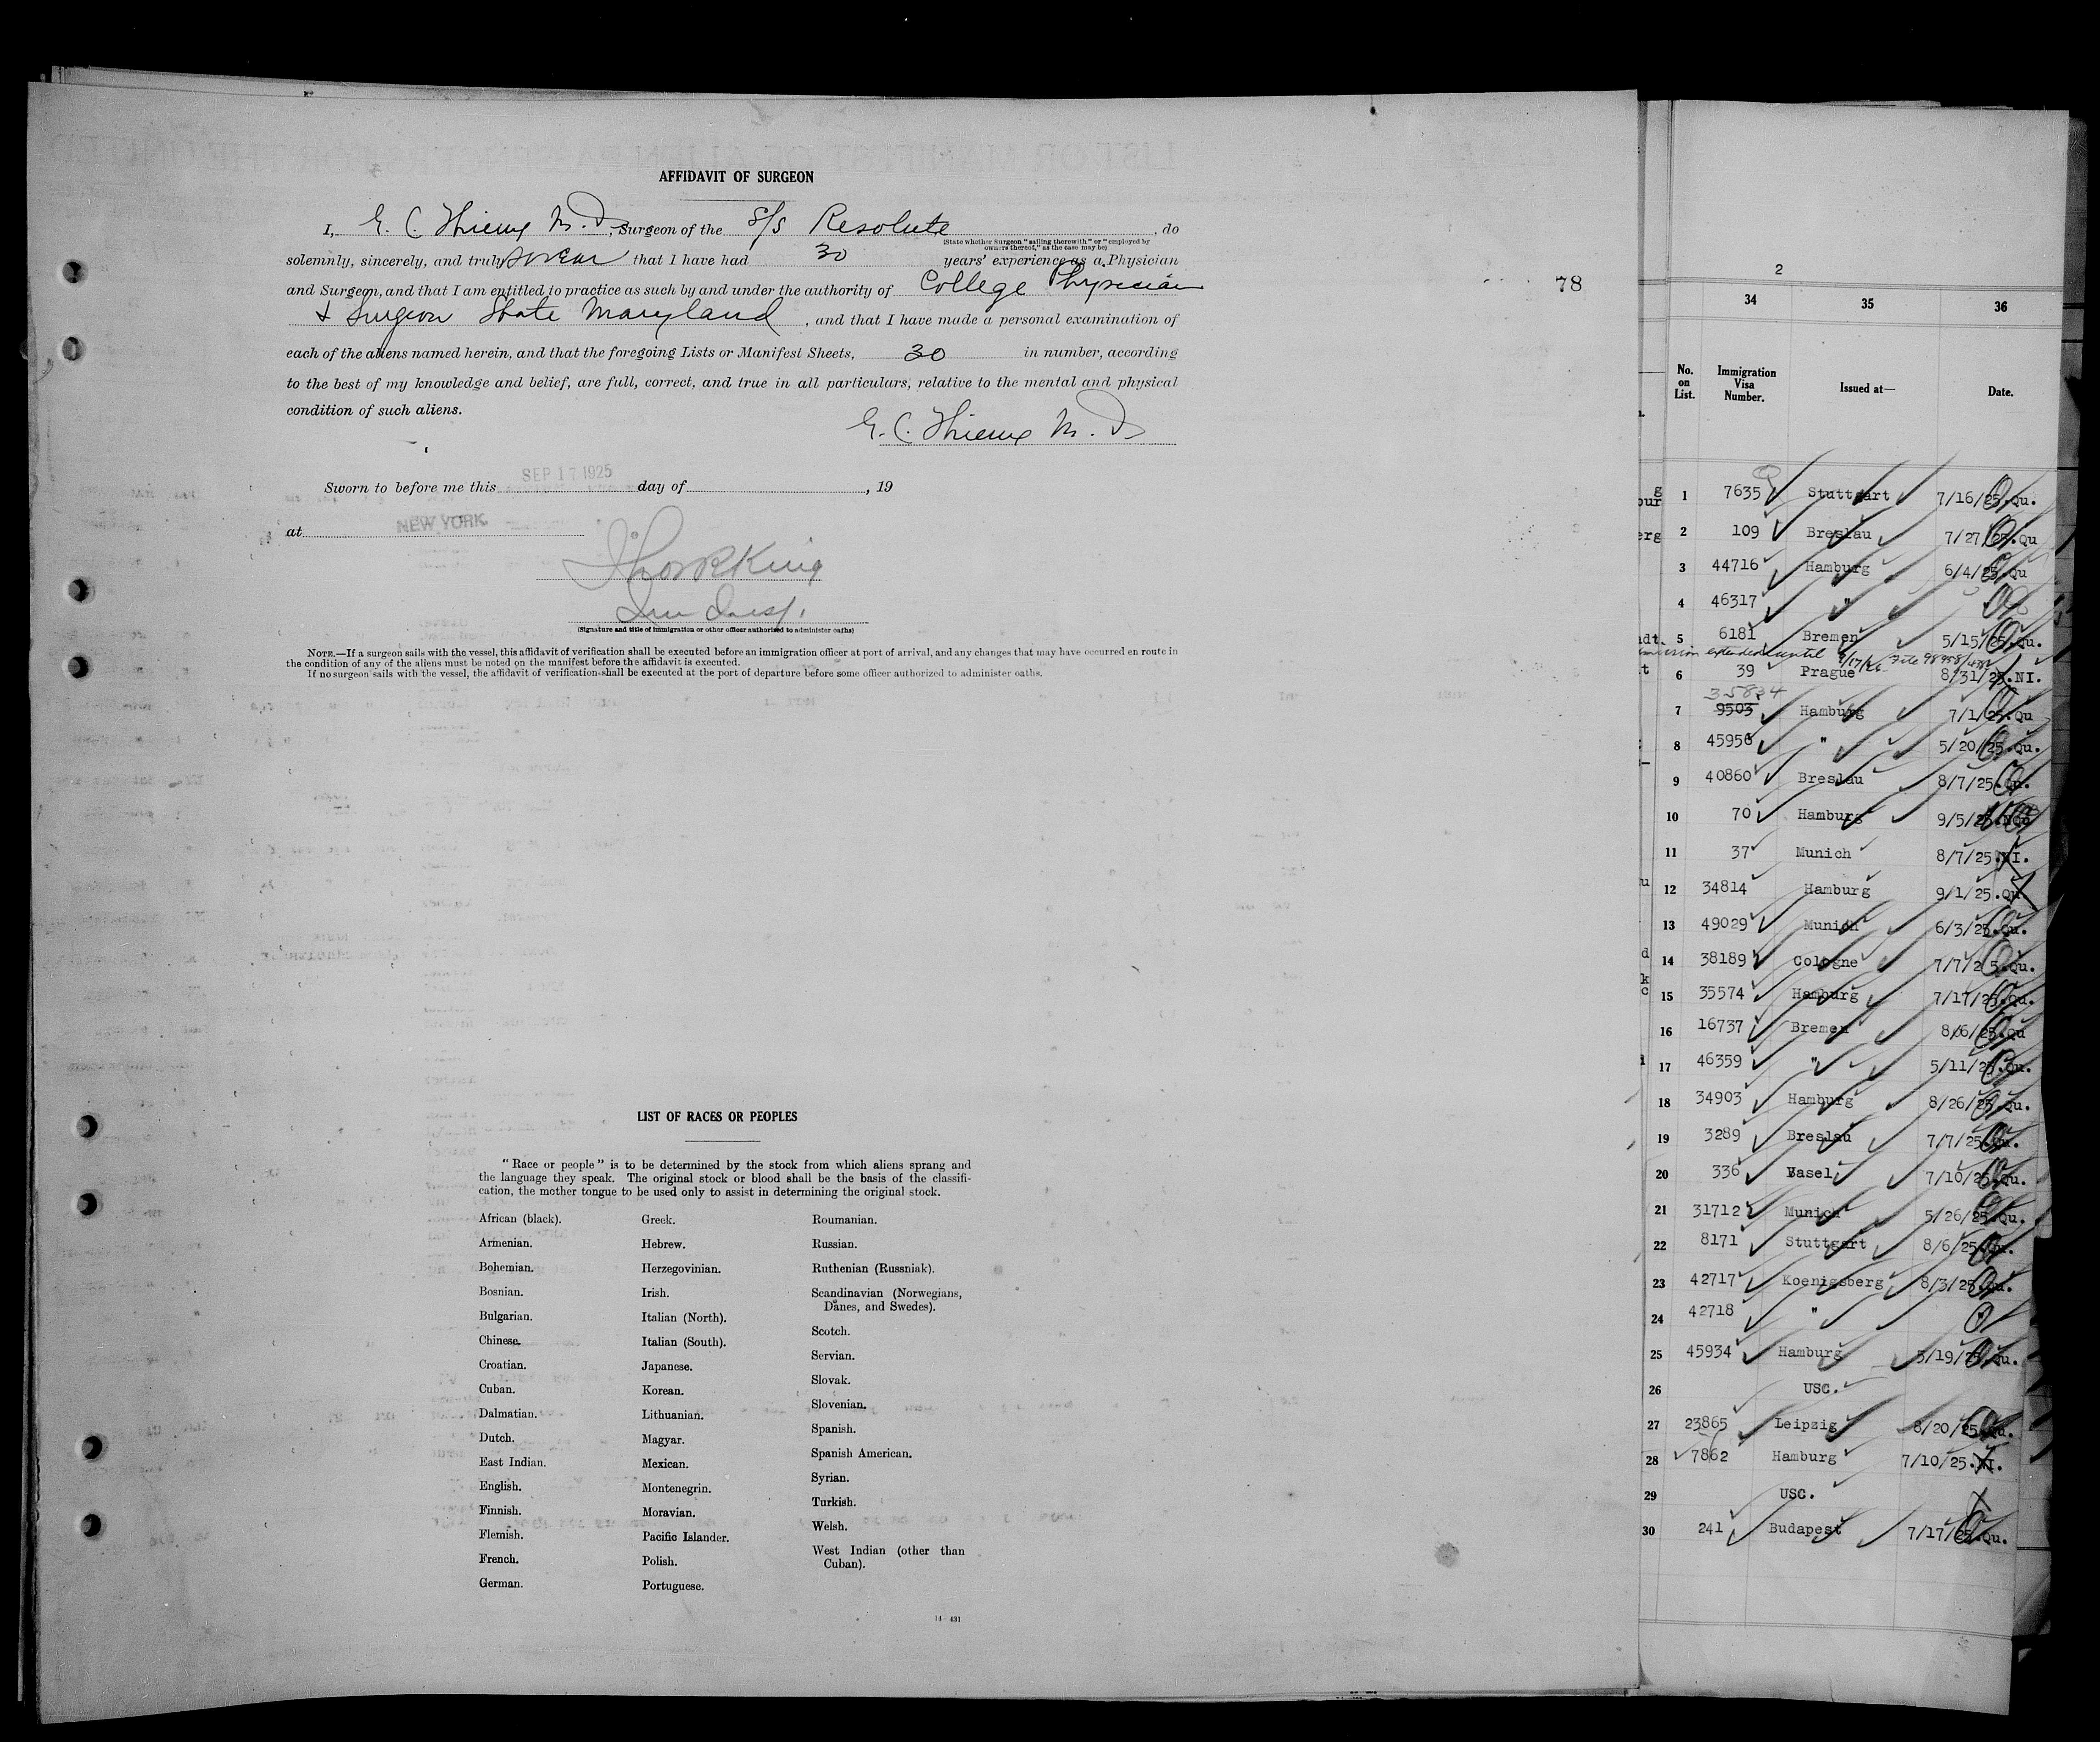 AFFIDAVIT OF SURGEON
I, E. C. Thieme M.D., Surgeon of the S/S Resolute, do
(State whether Surgeon "sailing therewith" or "employed by owners thereof," as the case may be)
solemnly, sincerely, and truly swear that I have had 30 years' experience as a Physician
and Surgeon, and that I am entitled to practice as such by and under the authority of College Physician
& Surgeon State Maryland, and that I have made a personal examination of
each of the aliens named herein, and that the foregoing Lists or Manifest Sheets, 30 in number, according
to the best of my knowledge and belief, are full, correct, and true in all particulars, relative to the mental and physical
condition of such aliens.
E. C. Thieme M.D.
Sworn to before me this SEP 17 1925 day of , 19
at NEW YORK
King
(Signature and title of immigration or other officer authorized to administer oaths)
NOTE.—If a surgeon sails with the vessel, this affidavit of verification shall be executed before an immigration officer at port of arrival, and any changes that may have occurred en route in
the condition of any of the aliens must be noted on the manifest before the affidavit is executed.
If no surgeon sails with the vessel, the affidavit of verification shall be executed at the port of departure before some officer authorized to administer oaths.
78
LIST OF RACES OR PEOPLES
"Race or people" is to be determined by the stock from which aliens sprang and
the language they speak. The original stock or blood shall be the basis of the classifi-
cation, the mother tongue to be used only to assist in determining the original stock.
African (black).
Armenian.
Bohemian.
Bosnian.
Bulgarian.
Chinese.
Croatian.
Cuban.
Dalmatian.
Dutch.
East Indian.
English.
Finnish.
Flemish.
French.
German.
Greek.
Hebrew.
Herzegovinian.
Irish.
Italian (North).
Italian (South).
Japanese.
Korean.
Lithuanian.
Magyar.
Mexican.
Montenegrin.
Moravian.
Pacific Islander.
Polish.
Portuguese.
Roumanian.
Russian.
Ruthenian (Russniak).
Scandinavian (Norwegians,
Danes, and Swedes).
Scotch.
Servian.
Slovak.
Slovenian.
Spanish.
Spanish American.
Syrian.
Turkish.
Welsh.
West Indian (other than
Cuban).
14—431
2
34 35 36
No. on List. Immigration Visa Number. Issued at— Date.
1 7635 Stuttgart 7/16/25.Qu.
2 109 Breslau 7/27/25.Qu
3 44716 Hamburg 6/4/25.Qu
4 46317 "
5 6181 Bremen 5/15/25.Qu.
extended until 9/17/26 File
6 39 Prague 8/31/25.NI.
35834
7 9503 Hamburg 7/1/25.Qu
8 45956 " 5/20/25.Qu.
9 40860 Breslau 8/7/25.Qu.
10 70 Hamburg 9/5/25.
11 37 Munich 8/7/25.NI.
12 34814 Hamburg 9/1/25.Qu
13 49029 Munich 6/3/25.Qu.
14 38189 Cologne 7/7/25.Qu.
15 35574 Hamburg 7/17/25.Qu.
16 16737 Bremen 8/6/25.Qu
17 46359 " 5/11/25.Qu.
18 34903 Hamburg 8/26/25.Qu.
19 3289 Breslau 7/7/25.Qu.
20 336 Basel 7/10/25.Qu.
21 31712 Munich 5/26/25.Qu.
22 8171 Stuttgart 8/6/25.Qu.
23 42717 Koenigsberg 8/3/25.Qu.
24 42718 "
25 45934 Hamburg 5/19/25.Qu.
26 USC.
27 23865 Leipzig 8/20/25.Qu.
28 7862 Hamburg 7/10/25.NI.
29 USC.
30 241 Budapest 7/17/25.Qu.